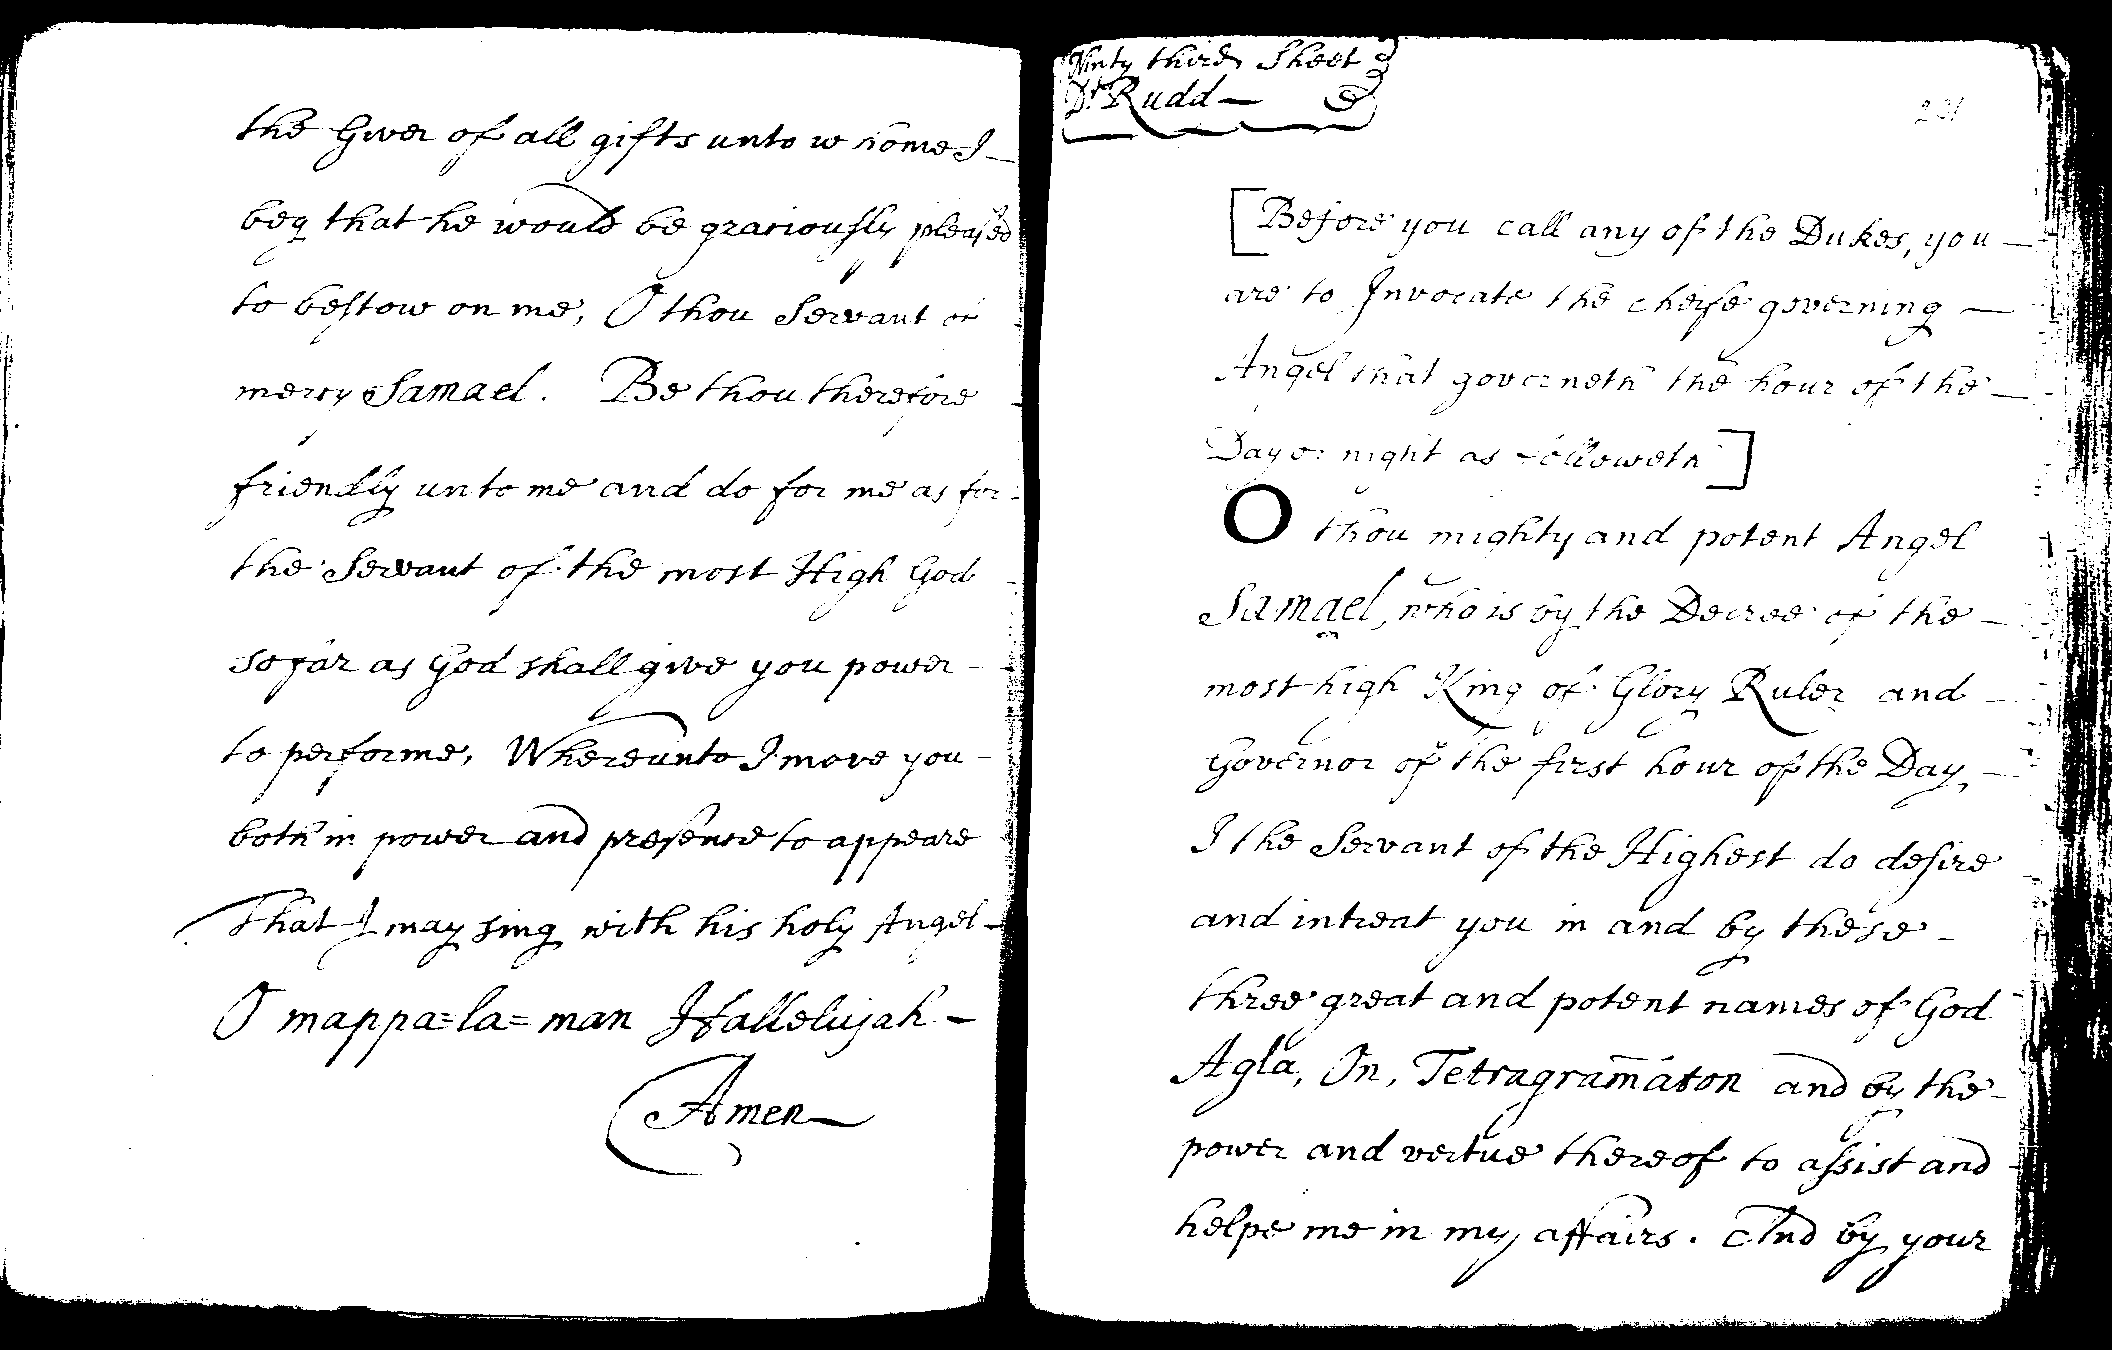 the Giver of all gifts unto whome I
beg that he would be graciously pleased
to bestow on me, O thou Servant of
mercy Samael. Be thou therefore
friendly unto me and do for me as for
the Servant of the most High God
so far as God shall give you power
to performe, Whereunto I move you
both in power and presence to appeare
That I may sing with his holy Angel
O mappa=la=man Hallelujah
Amen
Ninty third Sheet
Dr Rudd
231
[Before you call any of the Dukes, you
are to Invocate the cheife governing
Angel that governeth the hour of the
Day or night as followeth]
O thou mighty and potent Angel
Samael, who is by the Decree of the
most high King of Glory Ruler and
Governor of the first hour of the Day
I the Servant of the Highest do desire
and intreat you in and by these
three great and potent names of God
Agla, On, Tetragram̄aton and by the
power and vertue thereof to assist and
helpe me in my affairs. And by your